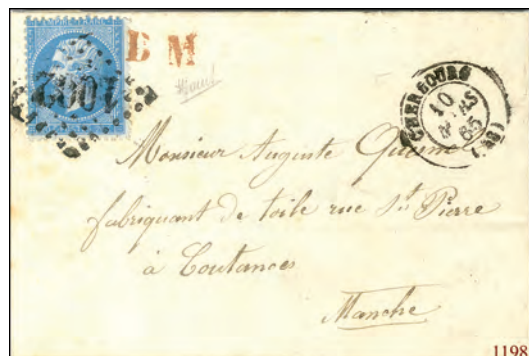 B M
1002
CHERBOURG
10
MARS
65
(48)
Monsieur Auguste
fabriquant de toile rue St Pierre
à Coutances
Manche
1198